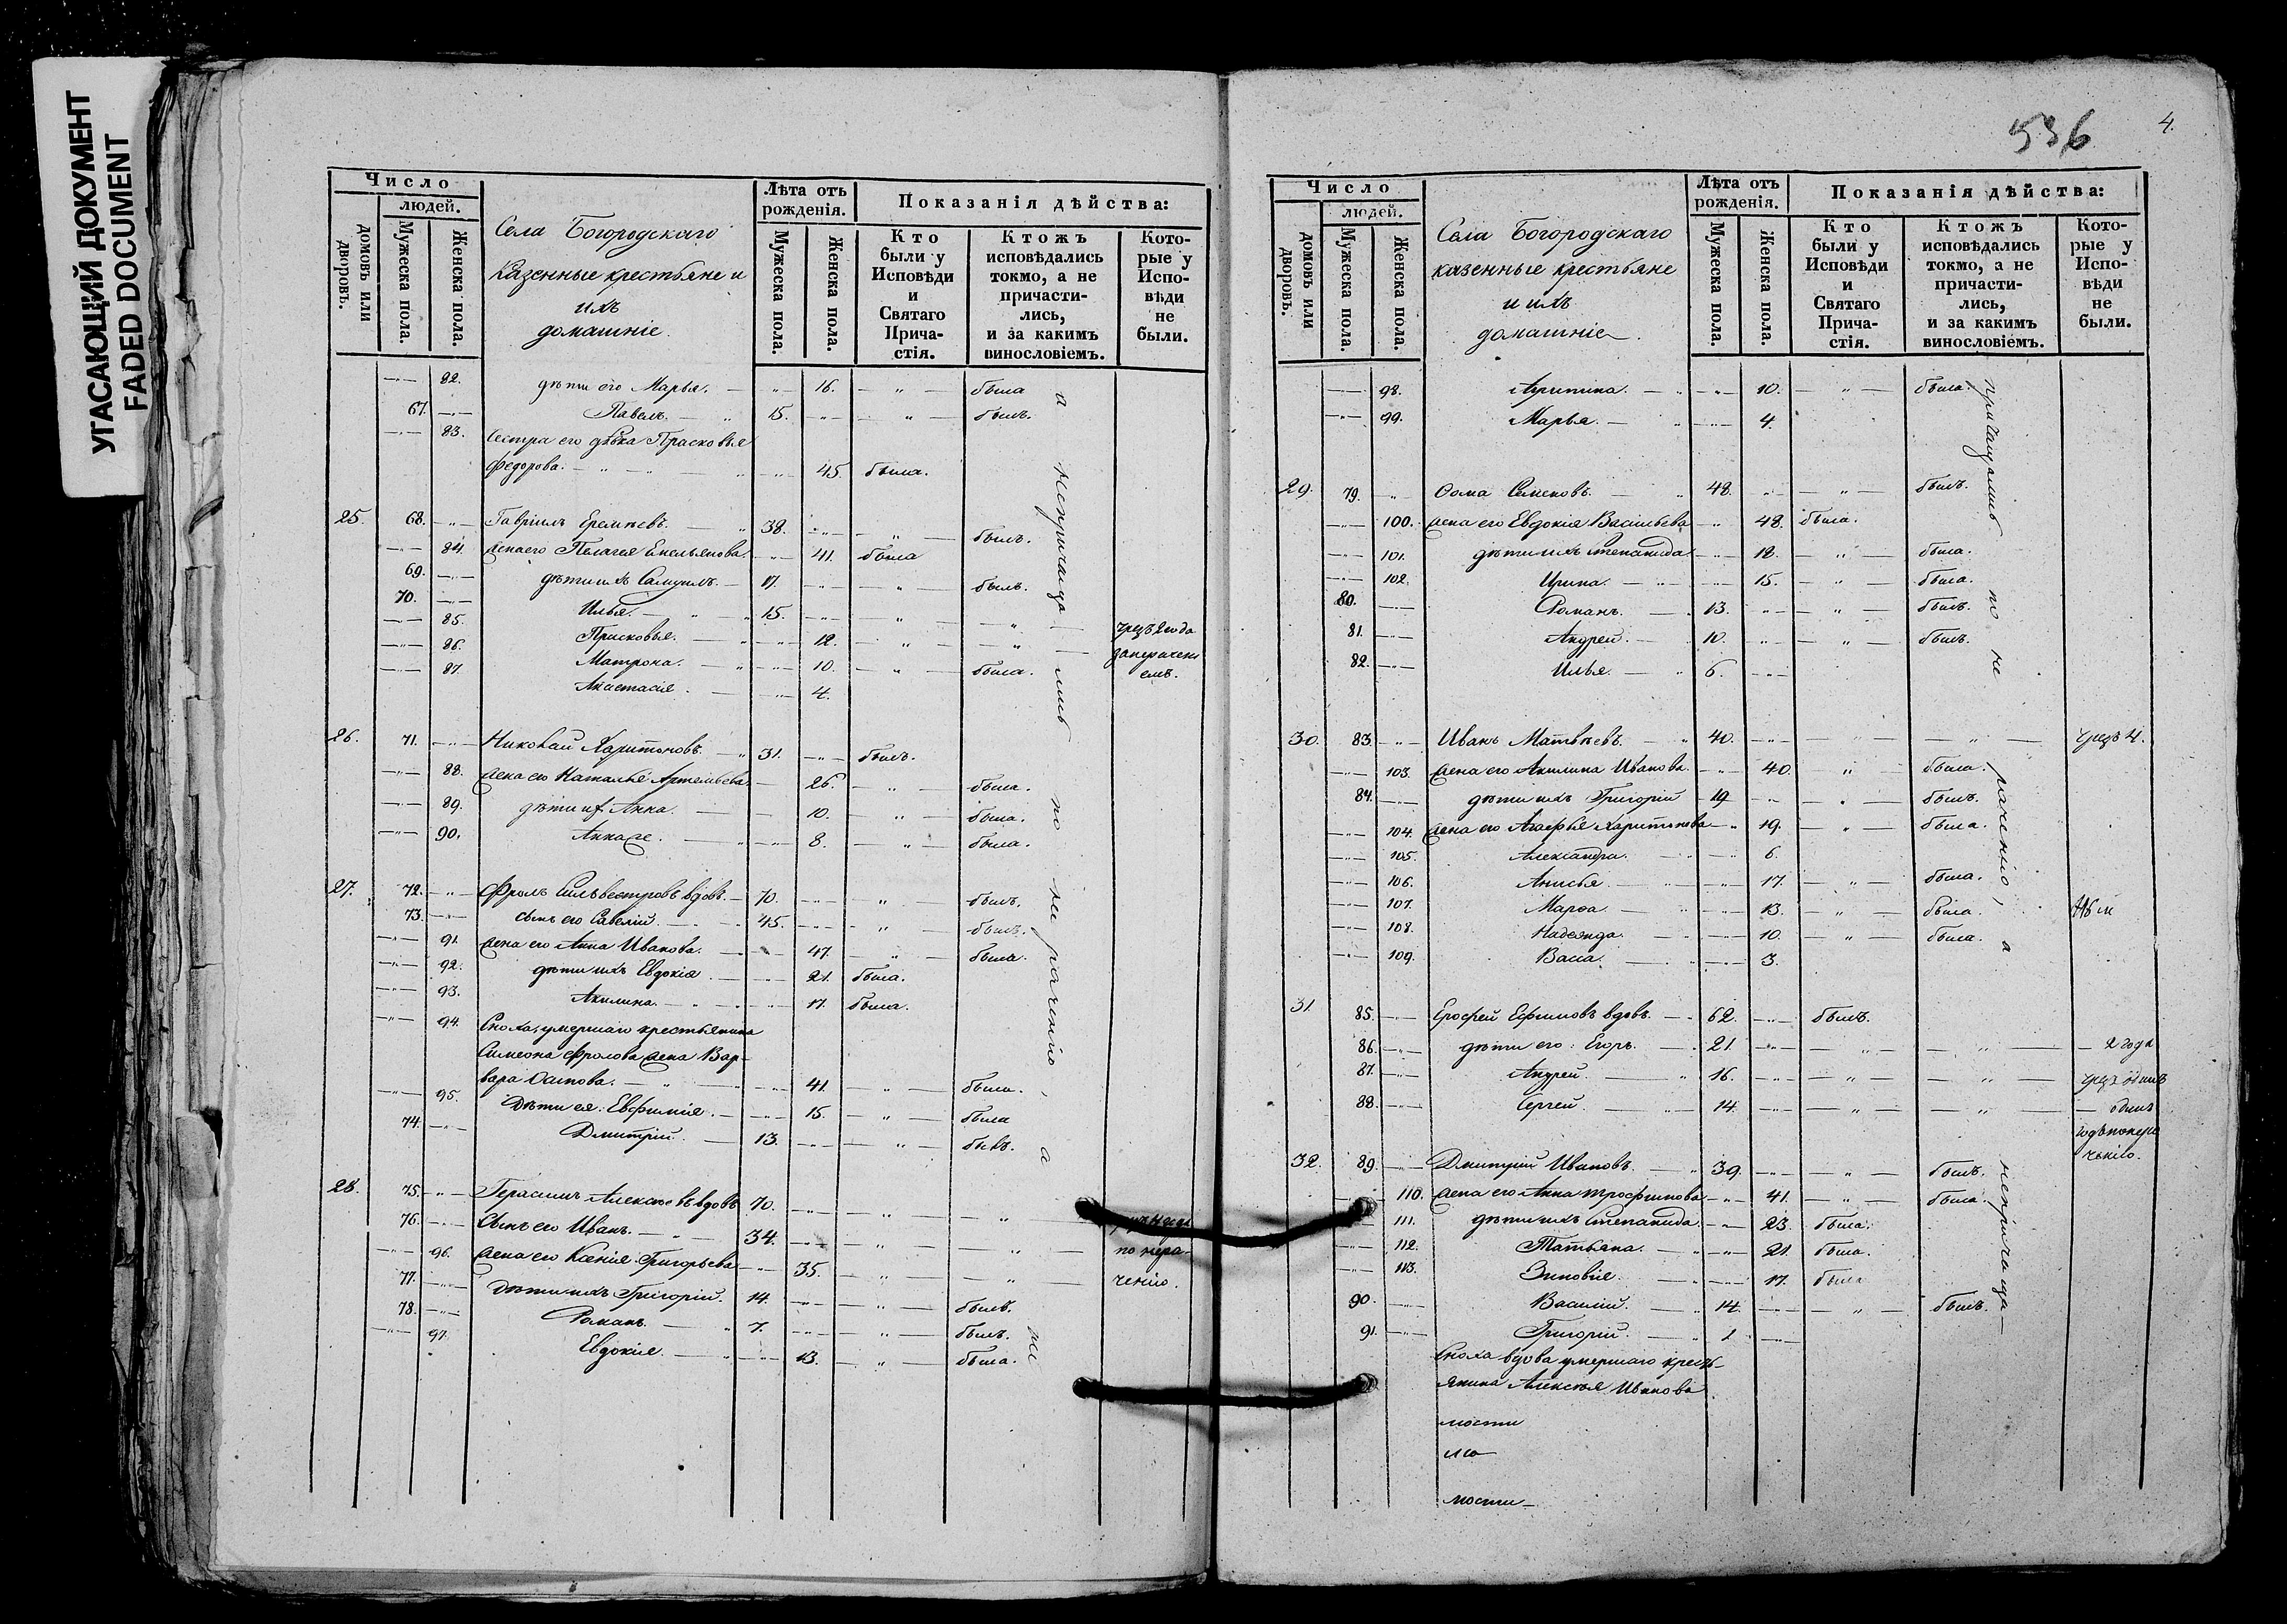 УГАСАЮЩИЙ ДОКУМЕНТ
FADED DOCUMENT
Число
людей.
домовъ или дворовъ.
Мужеска пола.
Женска пола.
Села Богородскаго
Казенные крестьяне и
ихъ
домашніе.
Лѣта отъ рожденія.
Мужеска пола.
Женска пола.
Показанія дѣйства:
Кто были у Исповѣди и Святаго Причастія.
Ктожъ исповѣдались токмо, а не причастились, и за какимъ винословіемъ.
Которые у Исповѣди не были.
82. дѣти его Марья. 16. была
67. Павелъ. 15. былъ.
83. Сестра его дѣвка Прасковья
Федорова. 45. была.
25. 68. Гавріилъ Еремѣевъ. 38. былъ.
84. жена его Пелагея Емельянова. 41. была
69. дѣти ихъ Самуилъ. 17. былъ.
70. Илья. 15.
85. Присковья. 12. чрезъ 2 года
86. Матрона. 10. была.
87. Анастасія. 4.
26. 71. Николай Харитоновъ. 31. былъ.
88. жена его Наталья Артемьева. 26. была.
89. дѣти их Анна. 10. была.
90. Анна же. 8. была.
27. 72. Фролъ Сильвестровъ вдовъ. 70. былъ.
73. сынъ его Савелій. 45. былъ.
91. жена его Анна Иванова. 47. была.
92. дѣти ихъ Евдокія. 21. была.
93. Акилина. 17. была.
94. Сноха, умершаго крестьянина
Симеона Фролова жена Вар-
вара Осипова. 41. была.
95. Дѣти ея: Евфимія. 15. была
74. Дмитрій. 13. былъ.
28. 75. Герасимъ Алексѣевъ вдовъ 70.
76. Сынъ его Иванъ. 34.
96. жена его Ксенія Григорьева 35. по нера-
чению.
77. Дѣти ихъ Григорій. 14. былъ.
78. Романъ. 7. былъ.
97. Евдокія. 13. была.
а непричаща-
лись по не рачению,
а не
536
4.
Число
людей.
домовъ или дворовъ.
Мужеска пола.
Женска пола.
Села Богородскаго
казенные крестьяне
и ихъ
домашніе.
Лѣта отъ рожденія.
Мужеска пола.
Женска пола.
Показанія дѣйства:
Кто были у Исповѣди и Святаго Причастія.
Ктожъ исповѣдались токмо, а не причастились, и за какимъ винословіемъ.
Которые у Исповѣди не были.
98. Агрипина. 10. была.
99. Марья. 4.
29. 79. Ѳома Семеновъ. 48. былъ.
100. жена его Евдокія Васильева 48. была.
101. дѣти ихъ Степанида 18. была.
102. Ирина. 15. была.
80. Романъ. 13. былъ.
81. Андрей. 10. былъ.
82. Илья. 6.
30. 83. Иванъ Матвѣевъ. 40. чрезъ 4.
103. жена его Акилина Иванова. 40. была.
84. дѣти ихъ Григорій 19 былъ.
104. жена его Агафья Харитонова 19. была.
105. Александра. 6.
106. Анисья. 17. была.
107. Марѳа. 13. была.
108. Надежда. 10. была.
109. Васса. 3.
31. 85. Ерофей Ефимовъ вдовъ. 62. былъ.
86. дѣти его: Егоръ. 21. 2 года
87. Андрей. 16. чрезъ одинъ
88. Сергей. 14. одинъ
32. 89. Дмитрій Ивановъ. 39. былъ.
110. жена его Анна Трофимова 41. была.
111. дѣти ихъ Степанида. 23. была.
112. Татьяна. 21. была.
113. Зиновія. 17. была
90. Василій. 14. былъ.
91. Григорій. 1
Сноха вдова умершаго кресть-
янина Алексѣя Иванова
мости
ло
мости
причащались по не
рачению, а
непричаща-